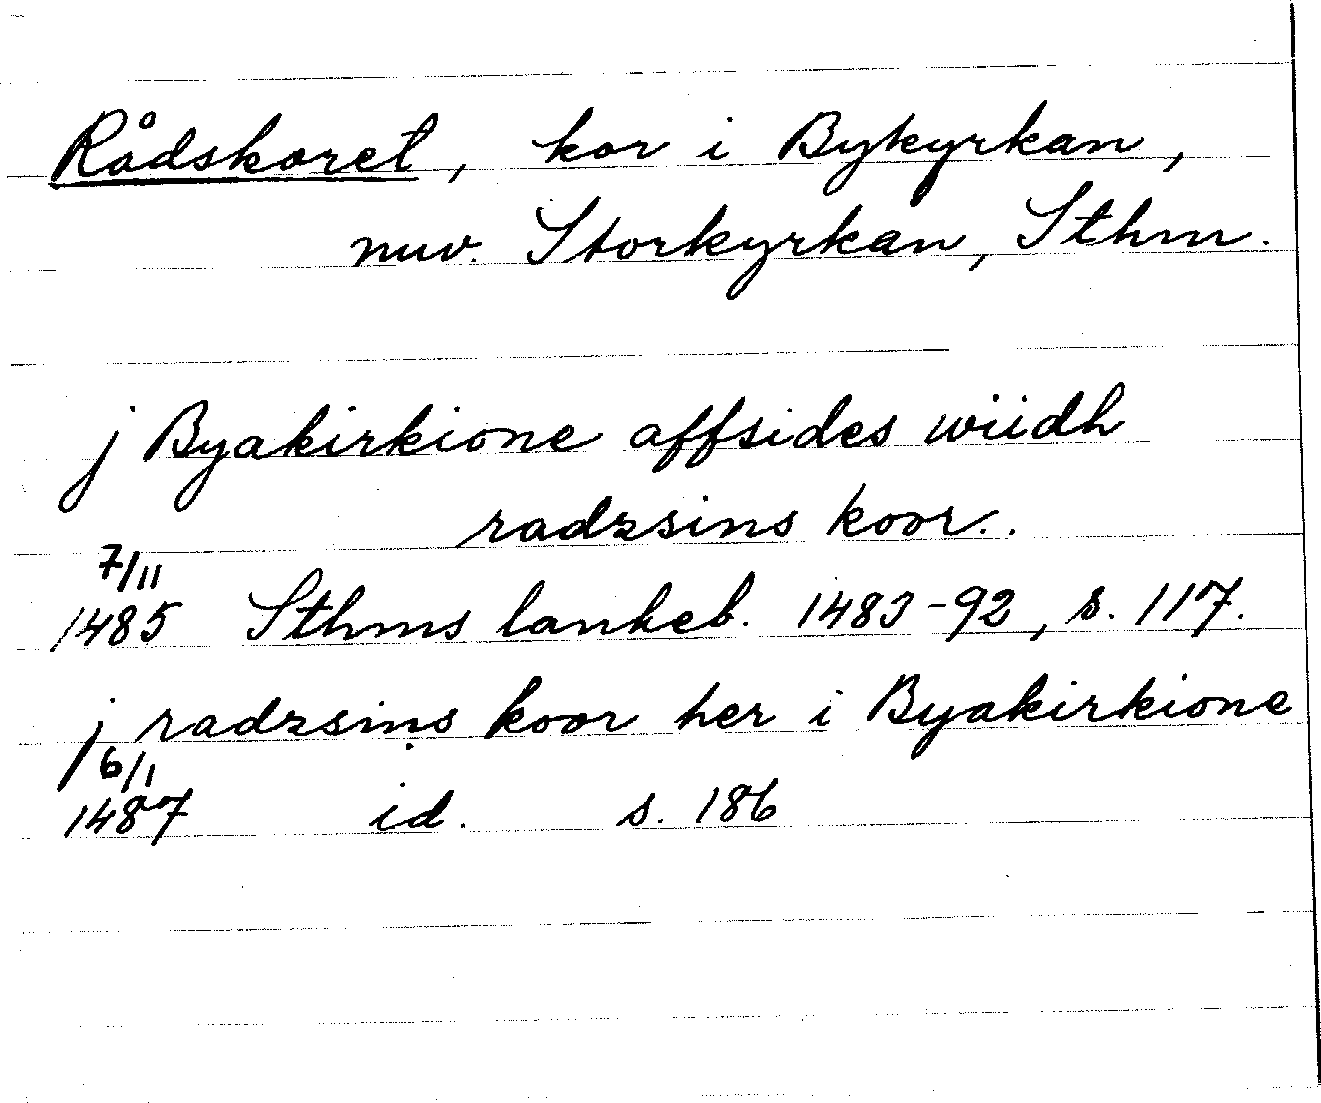 Rådskoret, kor i Bykyrkan,
nuv. Storkyrkan, Sthm.
j Byakirkione affsides wiidh
radzsins koor..
7/11
1485 Sthms tankeb. 1483-92, s. 117.
j radzsins koor her i Byakirkione
6/1
1487 id. s. 186